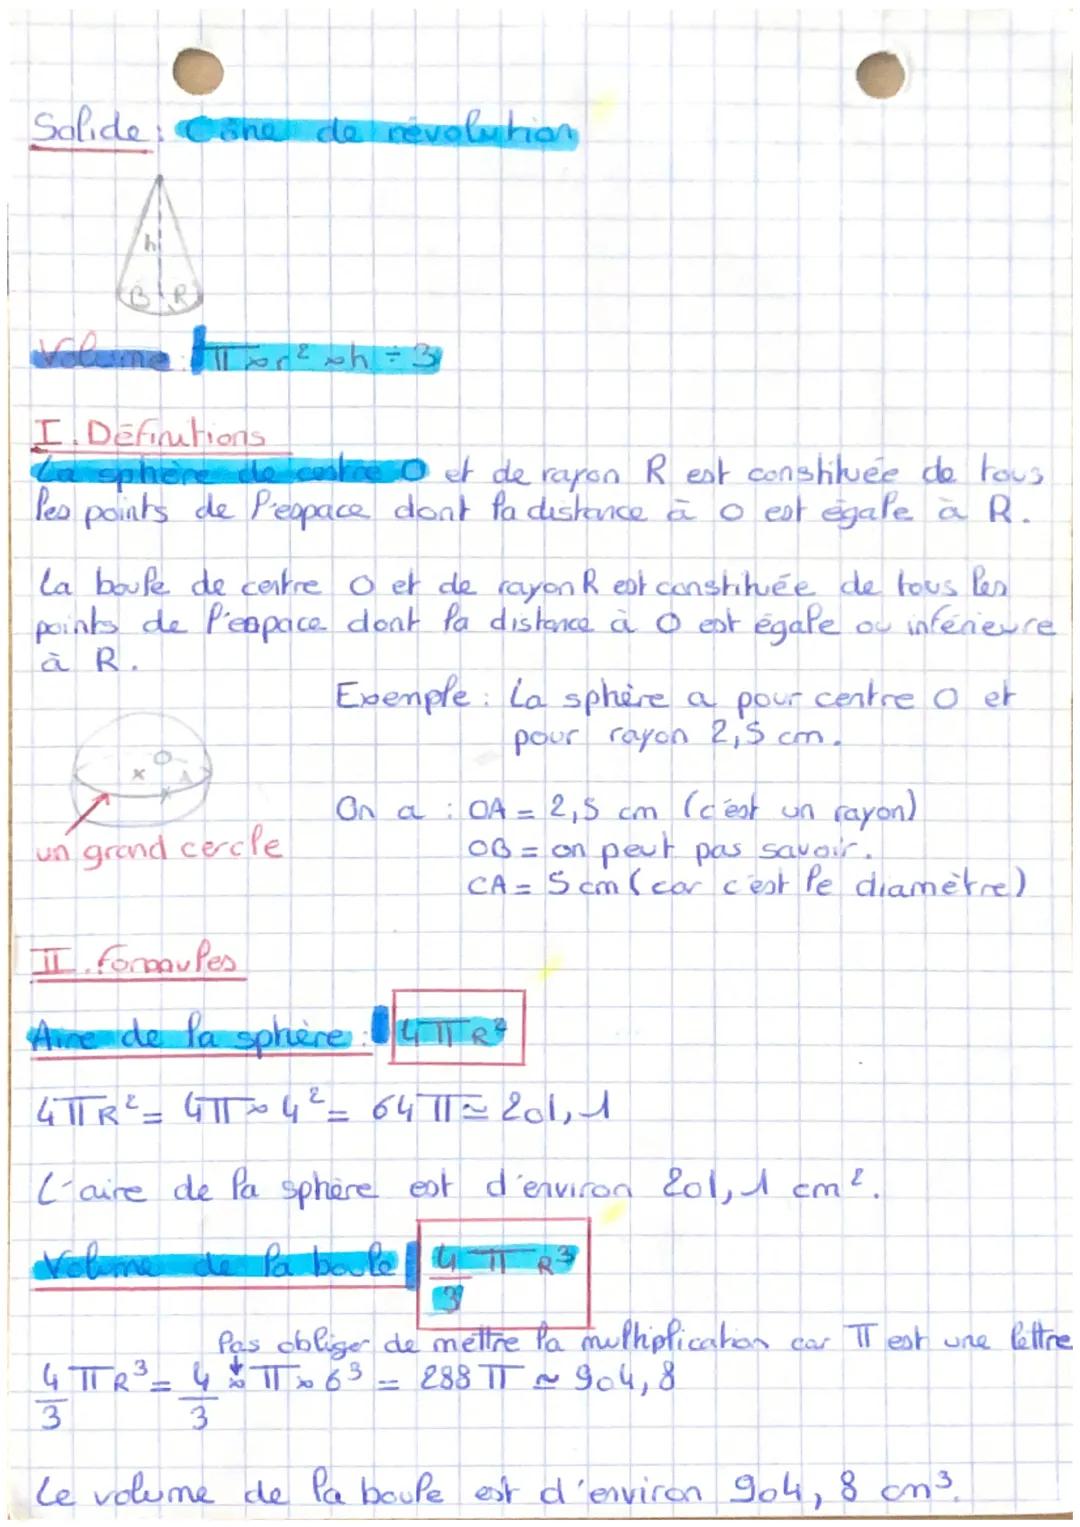 Solide : Cône de révolution
h
B R
Volume : π × r² × h ÷ 3
I. Définitions
La sphère de centre O et de rayon R est constituée de tous
les points de l'espace dont la distance à O est égale à R.
La boule de centre O et de rayon R est constituée de tous les
points de l'espace dont la distance à O est égale ou inférieure
à R.
Exemple : La sphère a pour centre O et
pour rayon 2,5 cm.
O
A
un grand cercle
On a : OA = 2,5 cm (c'est un rayon)
OB = on peut pas savoir.
CA = 5 cm (car c'est le diamètre)
II. Formules
Aire de la sphère : 4πR²
4πR² = 4π × 4² = 64π ≃ 201,1
L'aire de la sphère est d'environ 201,1 cm².
Volume de la boule 4/3 π R³
Pas obliger de mettre la multiplication car π est une lettre
4/3 πR³ = 4/3 × π × 6³ = 288π ≃ 904,8
Le volume de la boule est d'environ 904,8 cm³.